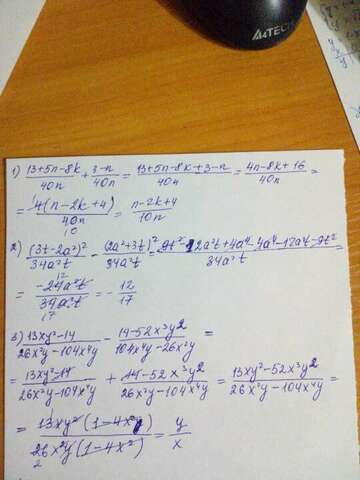 A4TECH
1) (13+5n-8k)/40n + (3-n)/40n = (13+5n-8k+3-n)/40n = (4n-8k+16)/40n =
= 4(n-2k+4)/40n = (n-2k+4)/10n
2) (3t-2a²)²/34a²t - (2a²+3t)²/34a²t = (9t²-12a²t+4a⁴-4a⁴-12a²t-9t²)/34a²t
= -24a²t/34a²t = -12/17
3) (13xy²-14)/(26x²y-104x⁴y) - (14-52x³y²)/(104x⁴y-26x²y) =
= (13xy²-14)/(26x²y-104x⁴y) + (14-52x³y²)/(26x²y-104x⁴y) = (13xy²-52x³y²)/(26x²y-104x⁴y) =